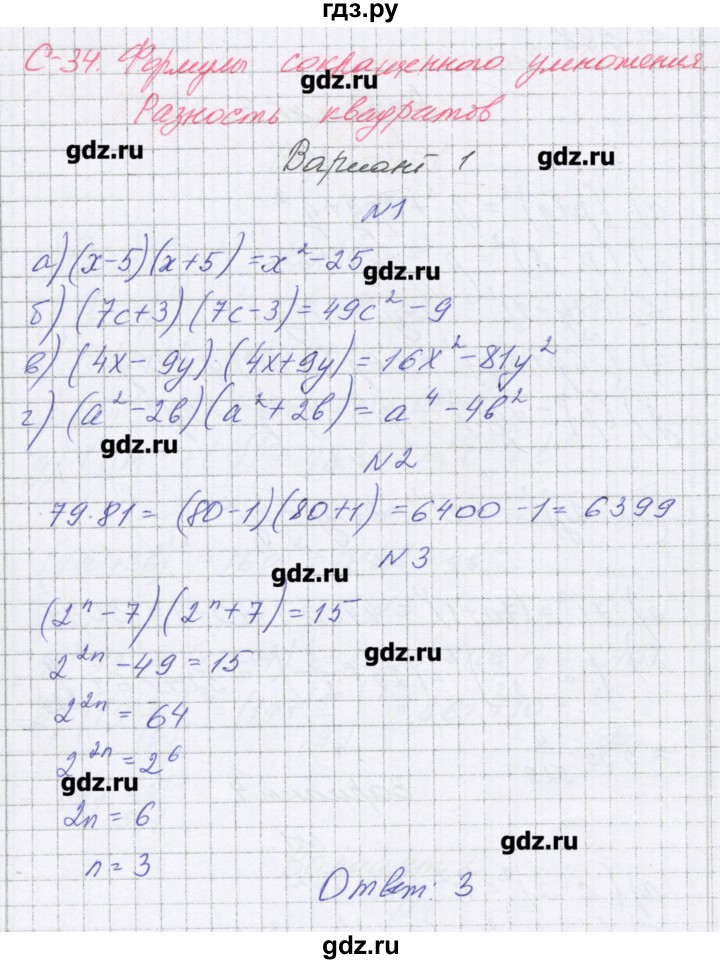 гдз.ру
С-34. Формулы сокращенного умножения
gdz.ru
Разность квадратов
gdz.ru
Вариант 1
gdz.ru
№1
а) (x-5)(x+5) = x² - 25
gdz.ru
б) (7c+3)(7c-3) = 49c² - 9
в) (4x - 9y)·(4x+9y) = 16x² - 81y²
г) (a² - 2b)(a² + 2b) = a⁴ - 4b²
gdz.ru
№2
79·81 = (80-1)(80+1) = 6400 - 1 = 6399
№3
gdz.ru
(2ⁿ - 7)(2ⁿ + 7) = 15
2²ⁿ - 49 = 15
gdz.ru
2²ⁿ = 64
2²ⁿ = 2⁶
gdz.ru
2n = 6
gdz.ru
n = 3
Ответ: 3
gdz.ru